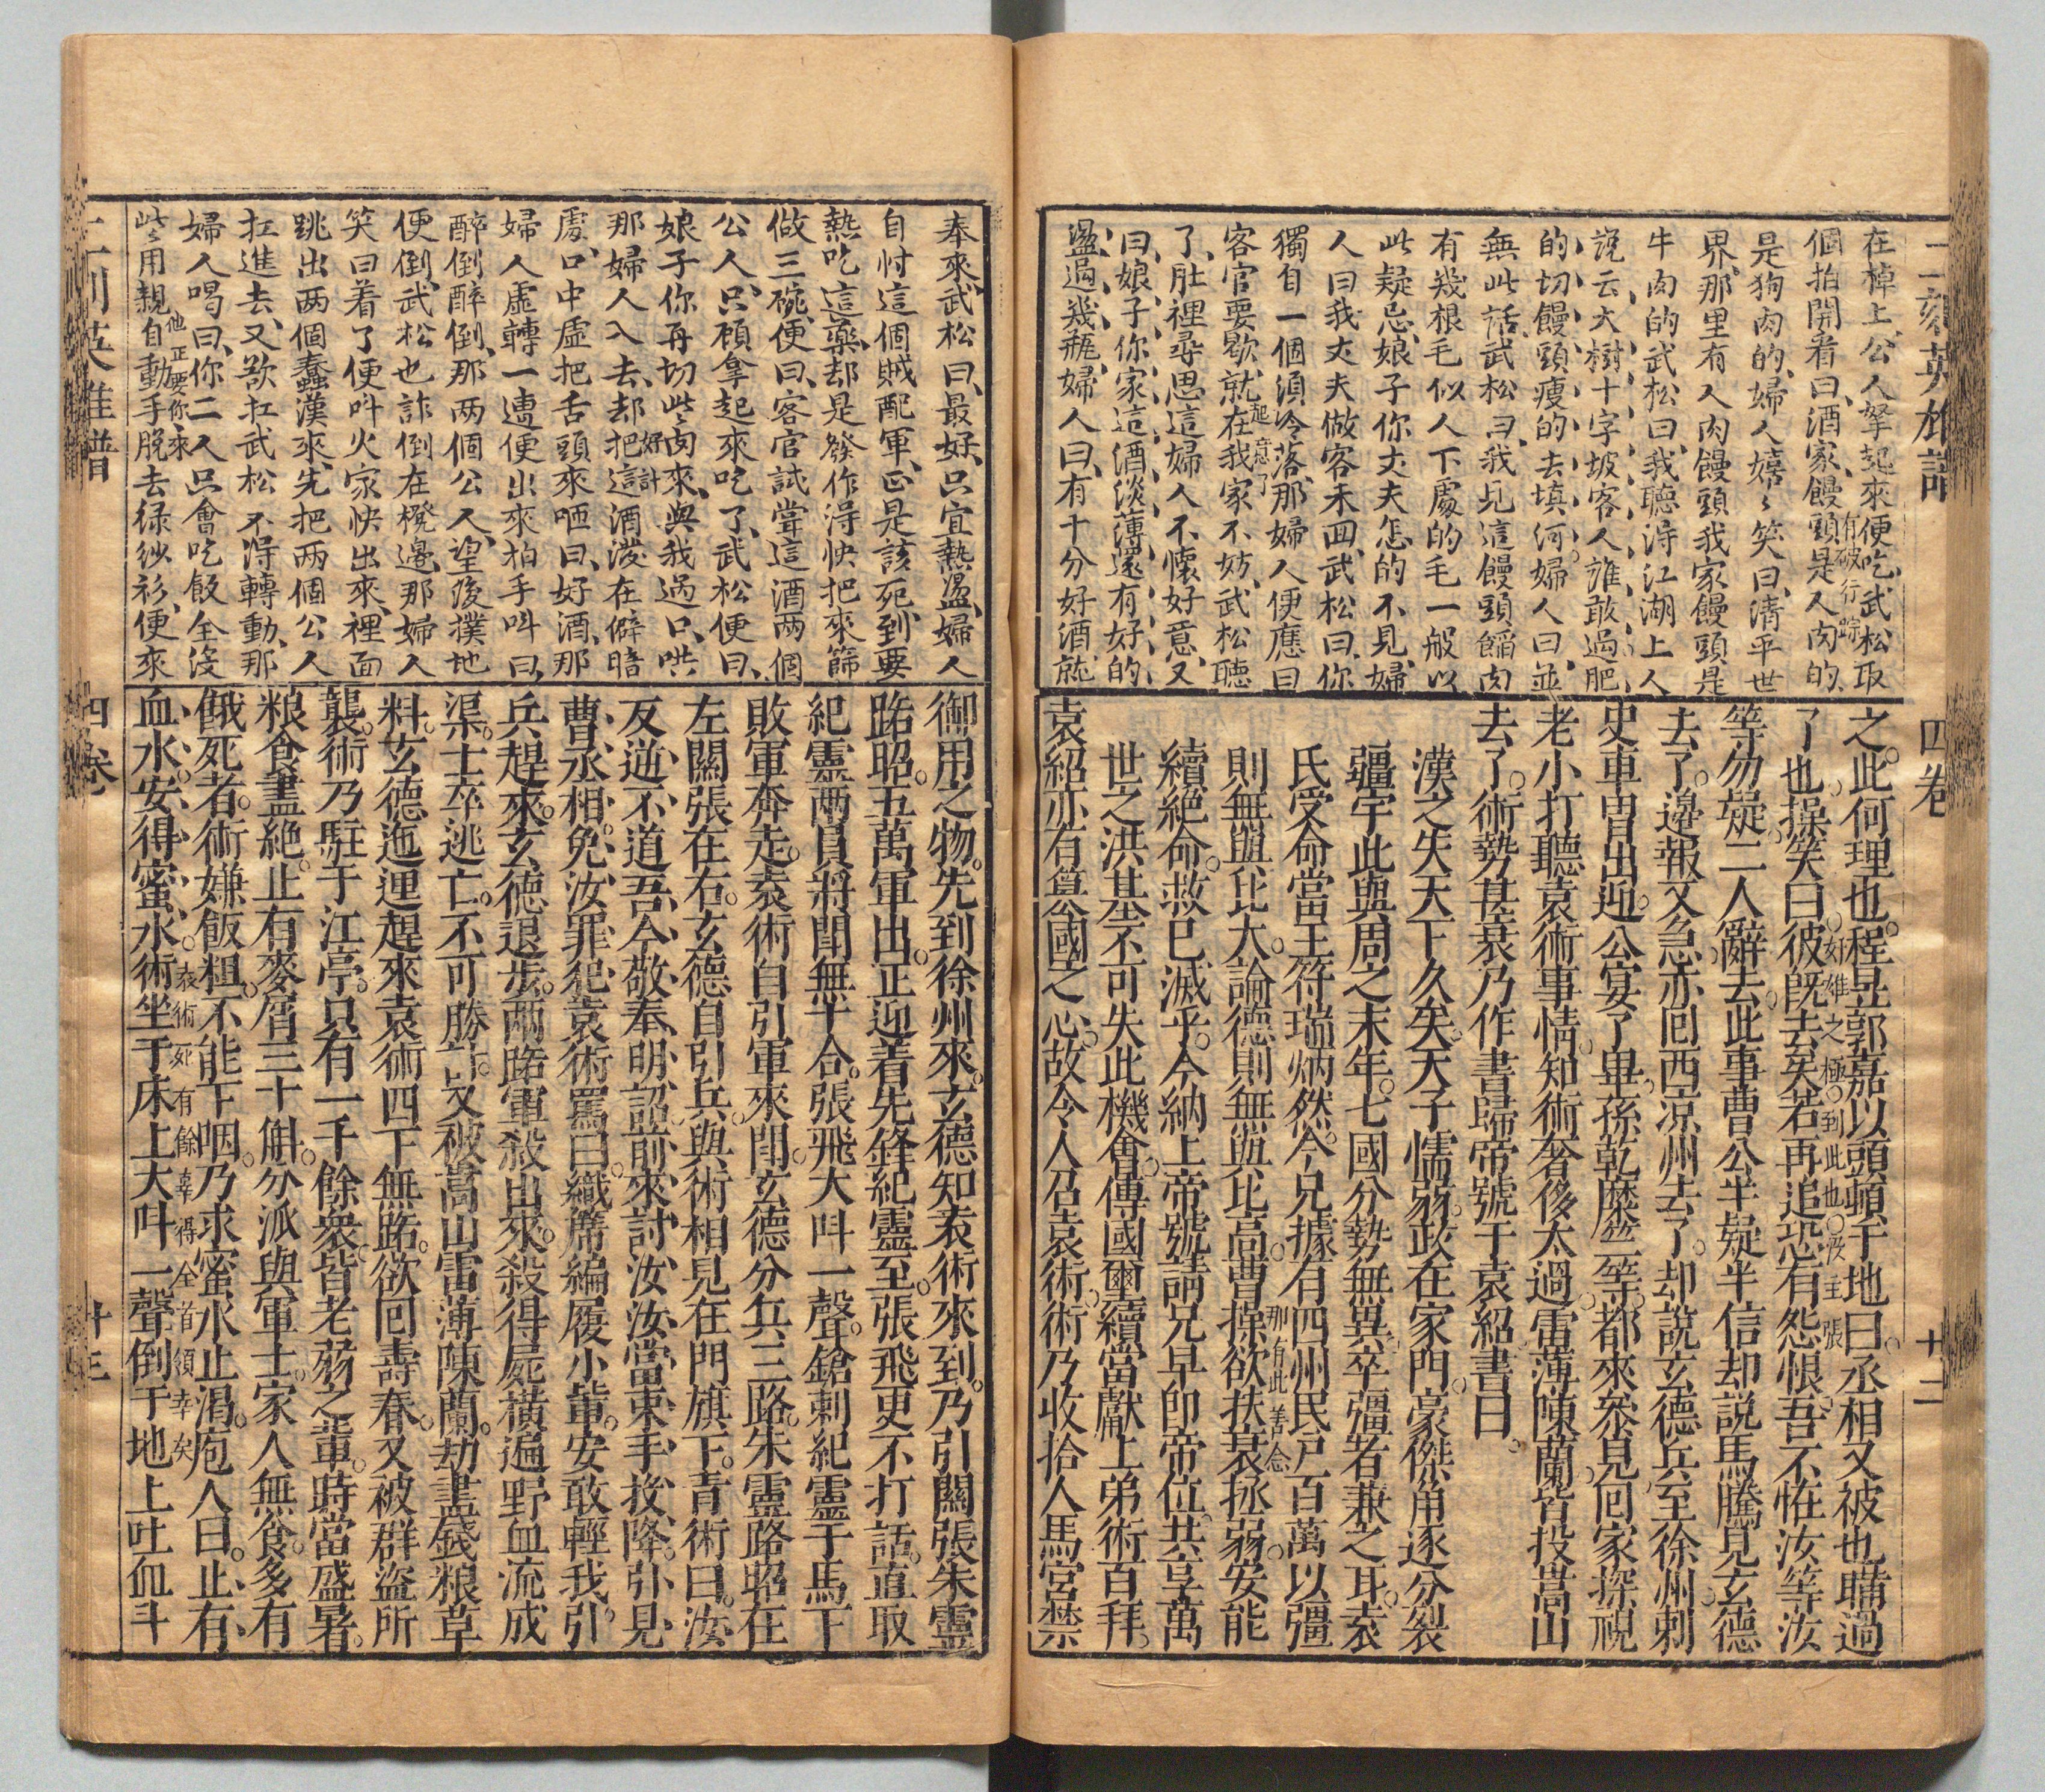 二刻英雄譜
四卷
十二
在棹上公人拏起來便吃武松取
個拍開看曰酒家饅頭是人肉的
有破行踪
是狗肉的婦人嬉〻笑曰清平世
界那里有人肉饅頭我家饅頭是
牛肉的武松曰我聽得江湖上人
說云大樹十字坡客人誰敢過肥
的切饅頭瘦的去填河婦人曰並
無此話武松曰我見這饅頭餡肉
有幾根毛似人下處的毛一般以
此疑忌娘子你丈夫怎的不見婦
人曰我丈夫做客未回武松曰你
獨自一個須冷落那婦人便應曰
客官要歇就在我家不妨武松聽
起意了
了肚裡尋思這婦人不懷好意又
曰娘子你家這酒淡薄還有好的
盪過幾瓶婦人曰有十分好酒就
之此何理也程昱郭嘉以頭頓于地曰丞相又被也瞞過
了也操笑曰彼既去矣若再追恐有怨恨吾不怪汝等汝
奸雄之極到此也沒主張
等勿疑二人辭去此事曹公半疑半信却說馬騰見玄德
去了邊報又急亦回西凉州去了却說玄德兵至徐州刺
史車冑出迎公宴了畢孫乾糜竺等都來參見回家探視
老小打聽袁術事情知術奢侈太過雷薄陳蘭皆投嵩山
去了術勢甚衰乃作書歸帝號于袁紹書曰
漢之失天下久矣天子懦弱政在家門豪傑角逐分裂
疆宇此與周之末年七國分勢無異卒彊者兼之耳袁
氏受命當王符瑞炳然今兄據有四州民戶百萬以彊
則無與比大論德則無與比高曹操欲扶衰拯弱安能
那有此善念
續絕命救已滅乎今納上帝號請兄早即帝位共享萬
世之洪基不可失此機會傳國璽續當獻上弟術百拜
袁紹亦有篡國之心故令人召袁術術乃收拾人馬宮禁
奉來武松曰最好只宜熱盪婦人
自忖這個賊配軍正是該死到要
熱吃這藥却是發作得快把來篩
做三碗便曰客官試嘗這酒兩個
公人只顧拿起來吃了武松便曰
娘子你再切些肉來與我過口哄
好計
那婦人入去却把這酒潑在僻暗
處口中虛把舌頭來咂曰好酒那
婦人虛轉一遭便出來拍手叫曰
醉倒醉倒那两個公人望後撲地
便倒武松也詐倒在櫈邊那婦人
笑曰着了便叫火家快出來裡面
跳出两個蠢漢來先把两個公人
扛進去又欲扛武松不得轉動那
婦人喝曰你二人只會吃飯全沒
他正要你來
些用親自動手脫去祿紗衫便來
御用之物先到徐州來玄德知袁術來到乃引關張朱靈
路昭五萬軍出正迎着先鋒紀靈至張飛更不打話直取
紀靈兩員將鬪無十合張飛大叫一聲鎗剌紀靈于馬下
敗軍奔走袁術自引軍來鬪玄德分兵三路朱靈路昭在
左關張在右玄德自引兵與術相見在門旗下責術曰汝
反逆不道吾今敬奉明詔前來討汝汝當束手投降引見
曹丞相免汝罪犯袁術罵曰織席編履小輩安敢輕我引
兵趕來玄德退步兩路軍殺出來殺得屍橫遍野血流成
渠士卒逃亡不可勝計又被嵩山雷薄陳蘭劫盡錢粮草
料玄德迤運趕來袁術四下無路欲回壽春又被群盜所
襲術乃駐于江亭只有一千餘衆皆老弱之輩時當盛暑
粮食盡絕止有麥屑三十斛分派與軍士家人無食多有
餓死者術嫌飯粗不能下咽乃求蜜水止渴庖人曰止有
血水安得蜜水術坐于床上大叫一聲倒于地上吐血斗
袁術死有餘辜得全首領幸矣
二刻英雄譜
四卷
十三